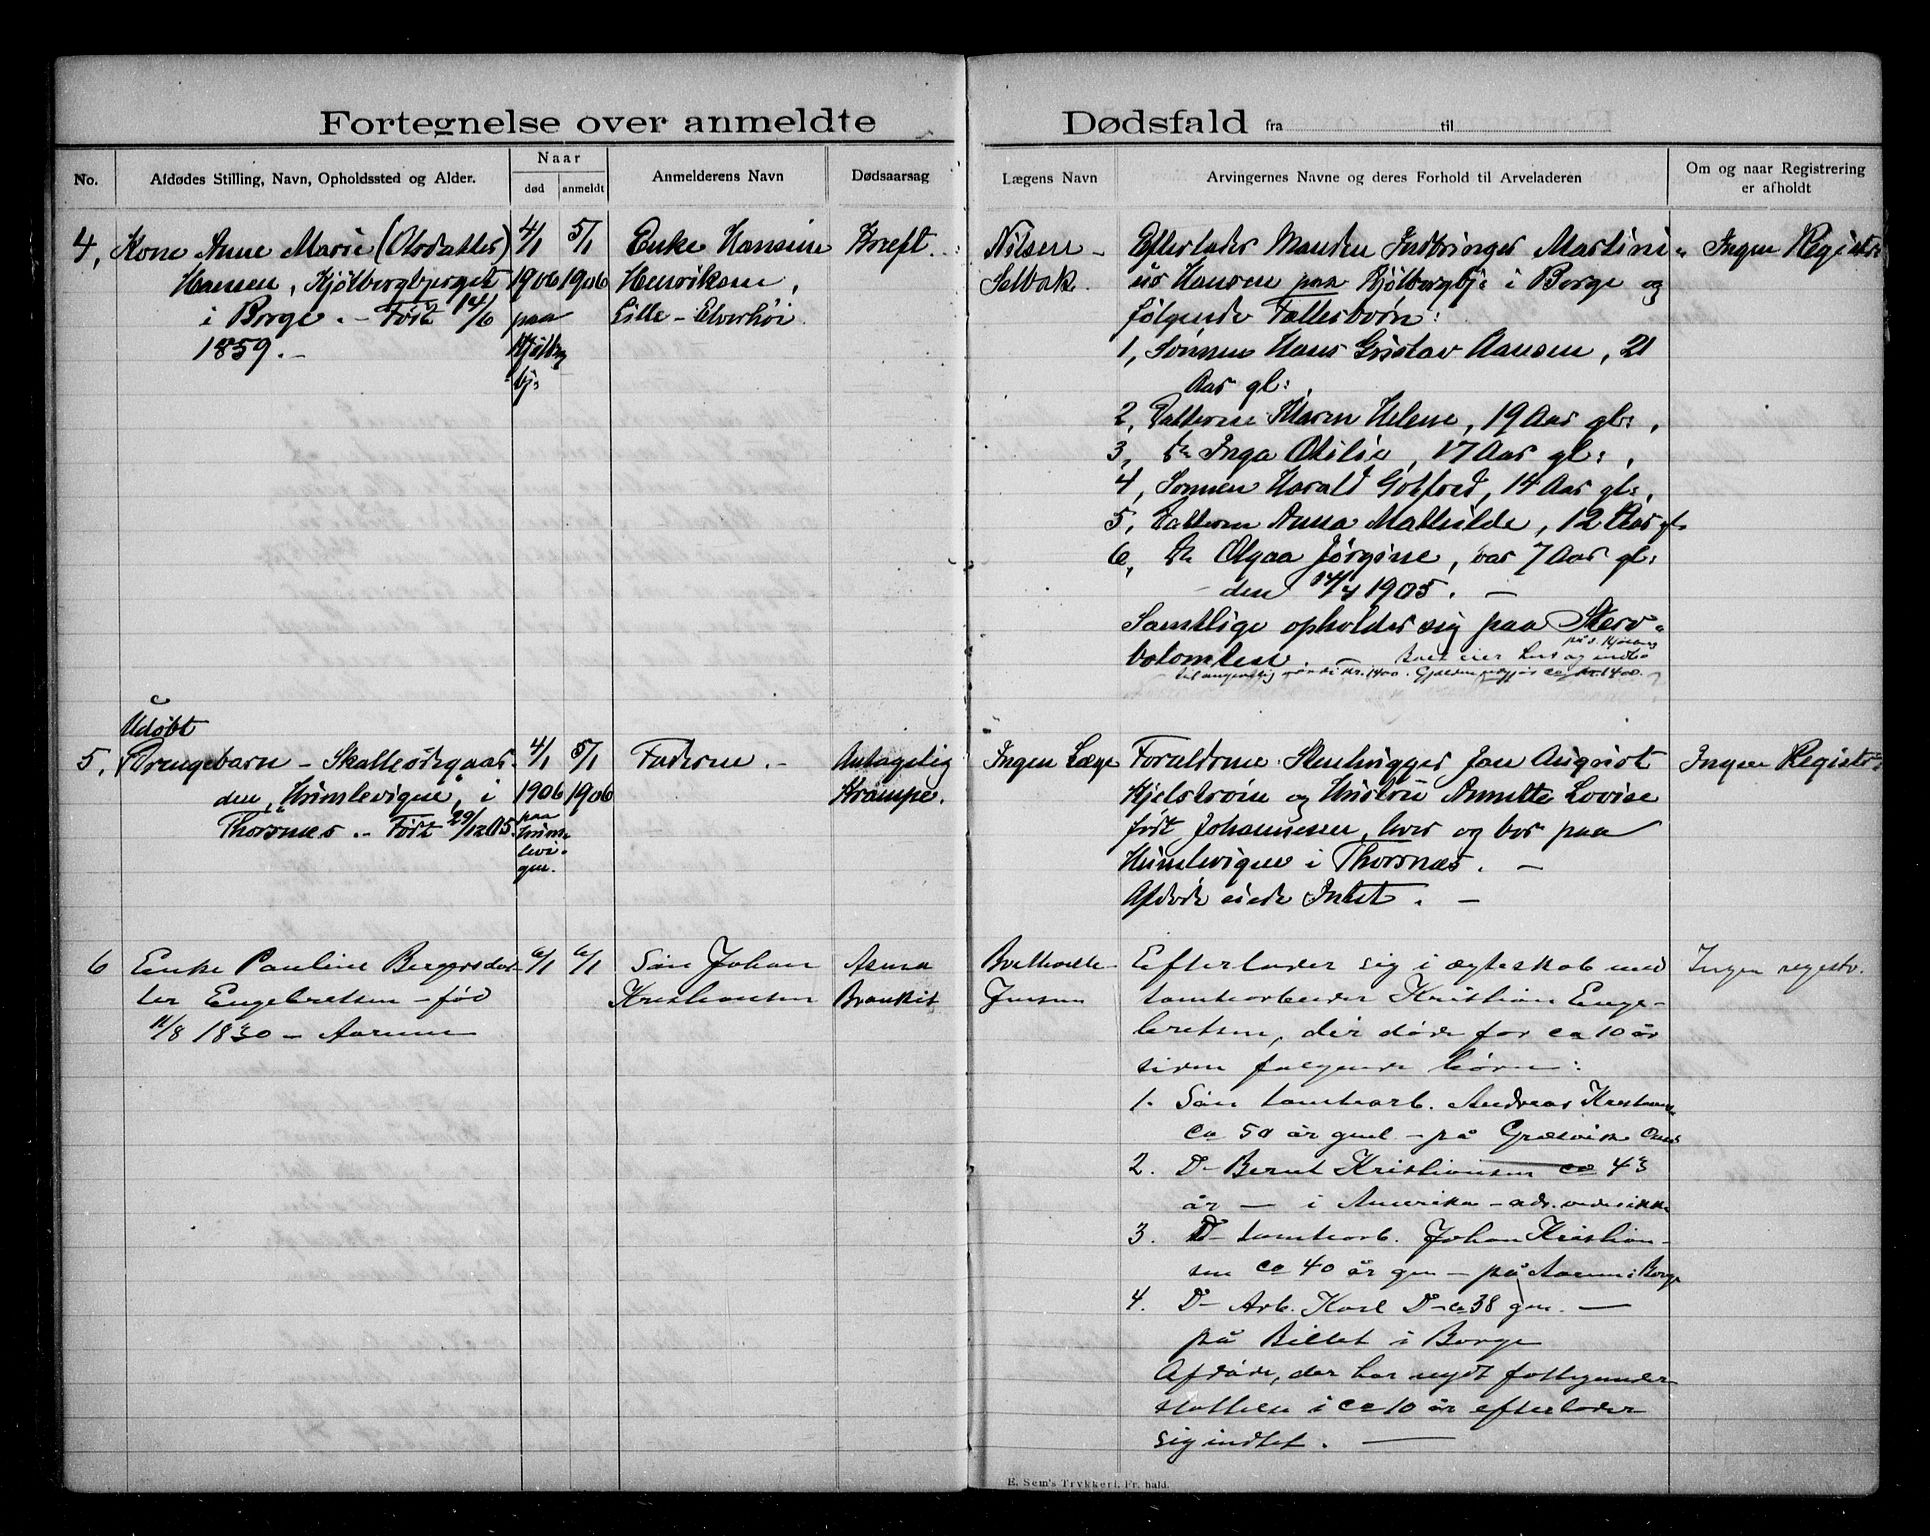 Fortegnelse over anmeldte Dødsfald fra til
No.
Afdødes Stilling, Navn, Opholdssted og Alder.
Naar
død
anmeldt
Anmelderens Navn
Dødsaarsag
Lægens Navn
Arvingernes Navne og deres Forhold til Arveladeren
Om og naar Registrering
er afholdt
4, Kone Anne Marie (Olsdatter)
Hansen, Kjølbergbjerget
i Borge. - Født 14/6
1859. -
4/1
1906
paa
Kjølbg
bj:
5/1
1906
Enke Hansine
Henriksen,
Lille-Elverhøi
Kræft.
Nilsen -
Selbak.
Efterlader Manden Indbringer Martini-
us Hansen paa Kjølbergbj: i Borge og
følgende Fællesbørn:
1, Sønnen Hans Gustav Hansen, 21
Aar gl:,
2, Datteren Maren Helene, 19 Aar gl:,
3, Do Inga Otilie, 17 Aar gl:,
4, Sønnen Harald Gotfred, 14 Aar gl:,
5, Datteren Anna Mathilde, 12 Aar gl.
6, Do Olgaa Jørgine, var 7 Aar gl:
den 14/4 1905. -
Samtlige opholder sig paa Sterv-
bolomtest. - Boet eier Hus og indbo
til angivelig værdi kr. 1400. Gjælden udgjør ca kr. 1400.
Ingen Registr:
Udøbt
5, Drengebarn - Skalleødegaar-
den, "Humlevigen" i
Thorsnæs. - Født 29/12 05.
4/1
1906
paa
Humle-
vi-
gen.
5/1
1906
Faderen. -
Antagelig
Krampe.
Ingen Læge
Forældrene: Stenhugger Jon August
Kjelstrøm og Hustru Annette Lovise
født Johannessen, hver og bor paa
Humlevigen i Thorsnæs. -
Afdøde eiede Intet. -
Ingen Registr:
6 Enke Pauline Bergersdat-
ter Engebretsen - fød
11/8 1830 - Aarum
6/1
6/1
Søn Johan
Kristiansen
Asma
Bronkit
Jensen
Efterlader sig i ægteskab med
tomtearbeider Kristian Enge-
bretsen, der døde for ca 10 år
siden følgende børn:
1. Søn tomtearb. Andreas Kristians
ca 50 år gml - på Græsvik Onsø
2. Do Bernt Kristiansen ca 43
år - i Amerika - adr. vides ikke
3. Do tomtearb. Johan Kristian-
sen ca 40 år gml - på Aarum i Borge
4. Do Arb. Karl Do ca 38 gml. -
på Billet i Borge
Afdøde, der har nydt fattigunder-
støttelse i ca 10 år efterlader
sig indtet. -
Ingen registr.
E. Sem's Trykkeri, Fr. hald.